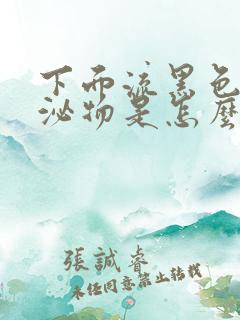 下面流黑色
泌物是怎麼
張誠睿
未經同意禁止轉載